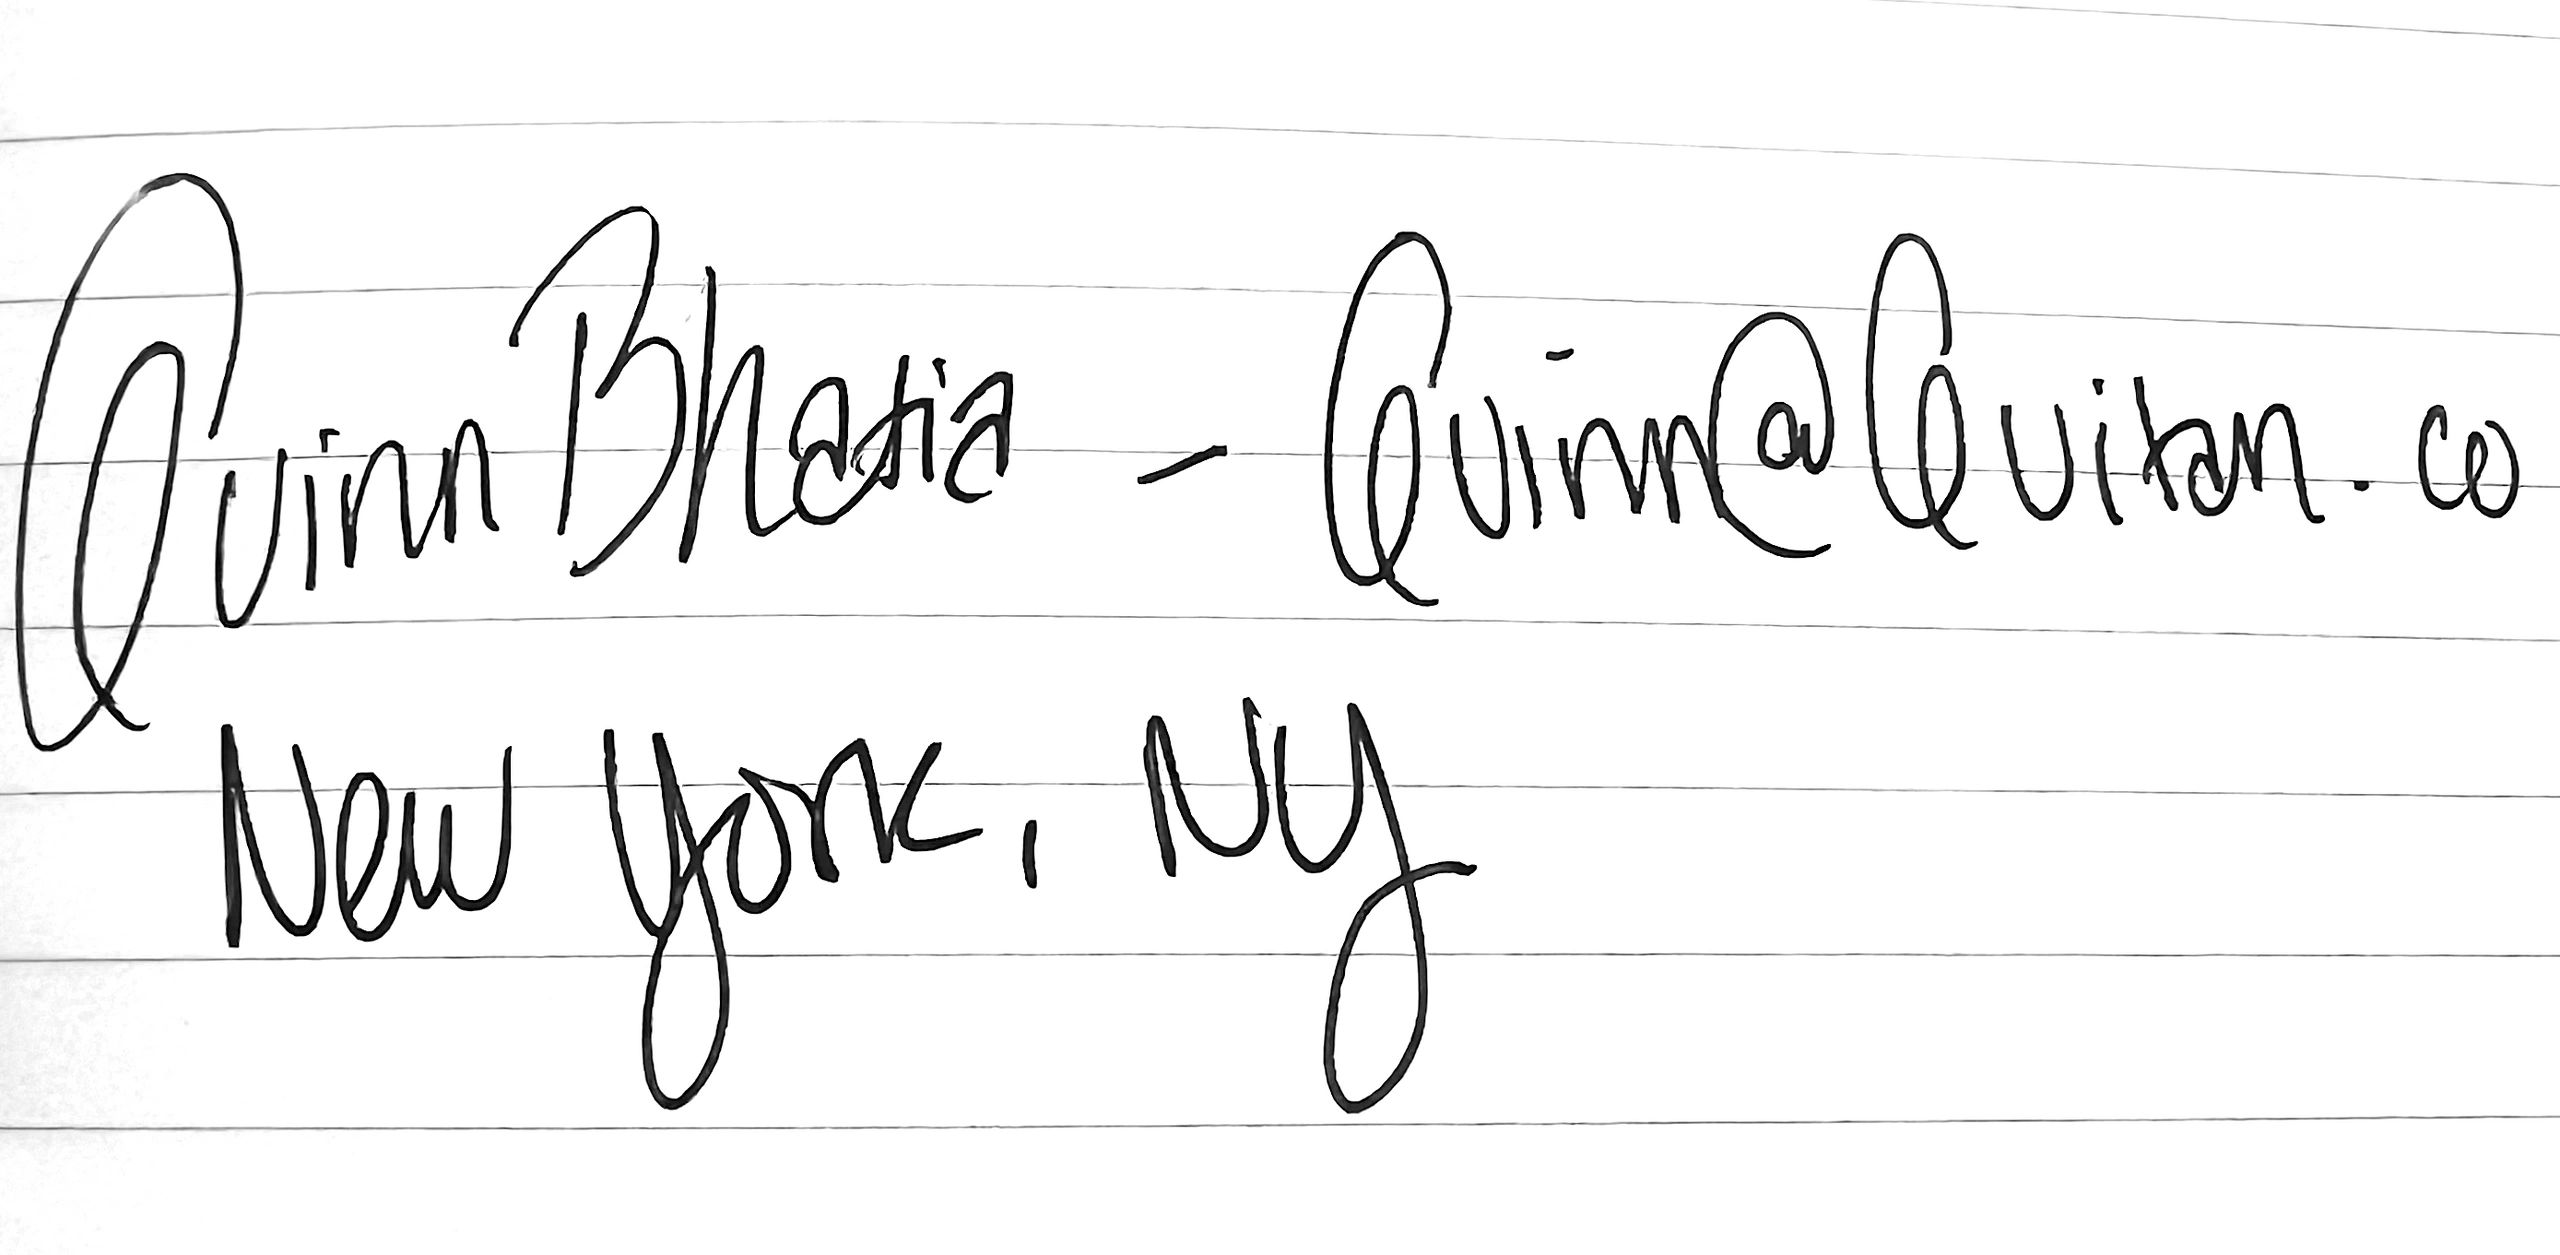 Quinn Bhatia - Quinn@Quitan.co
New York, NY